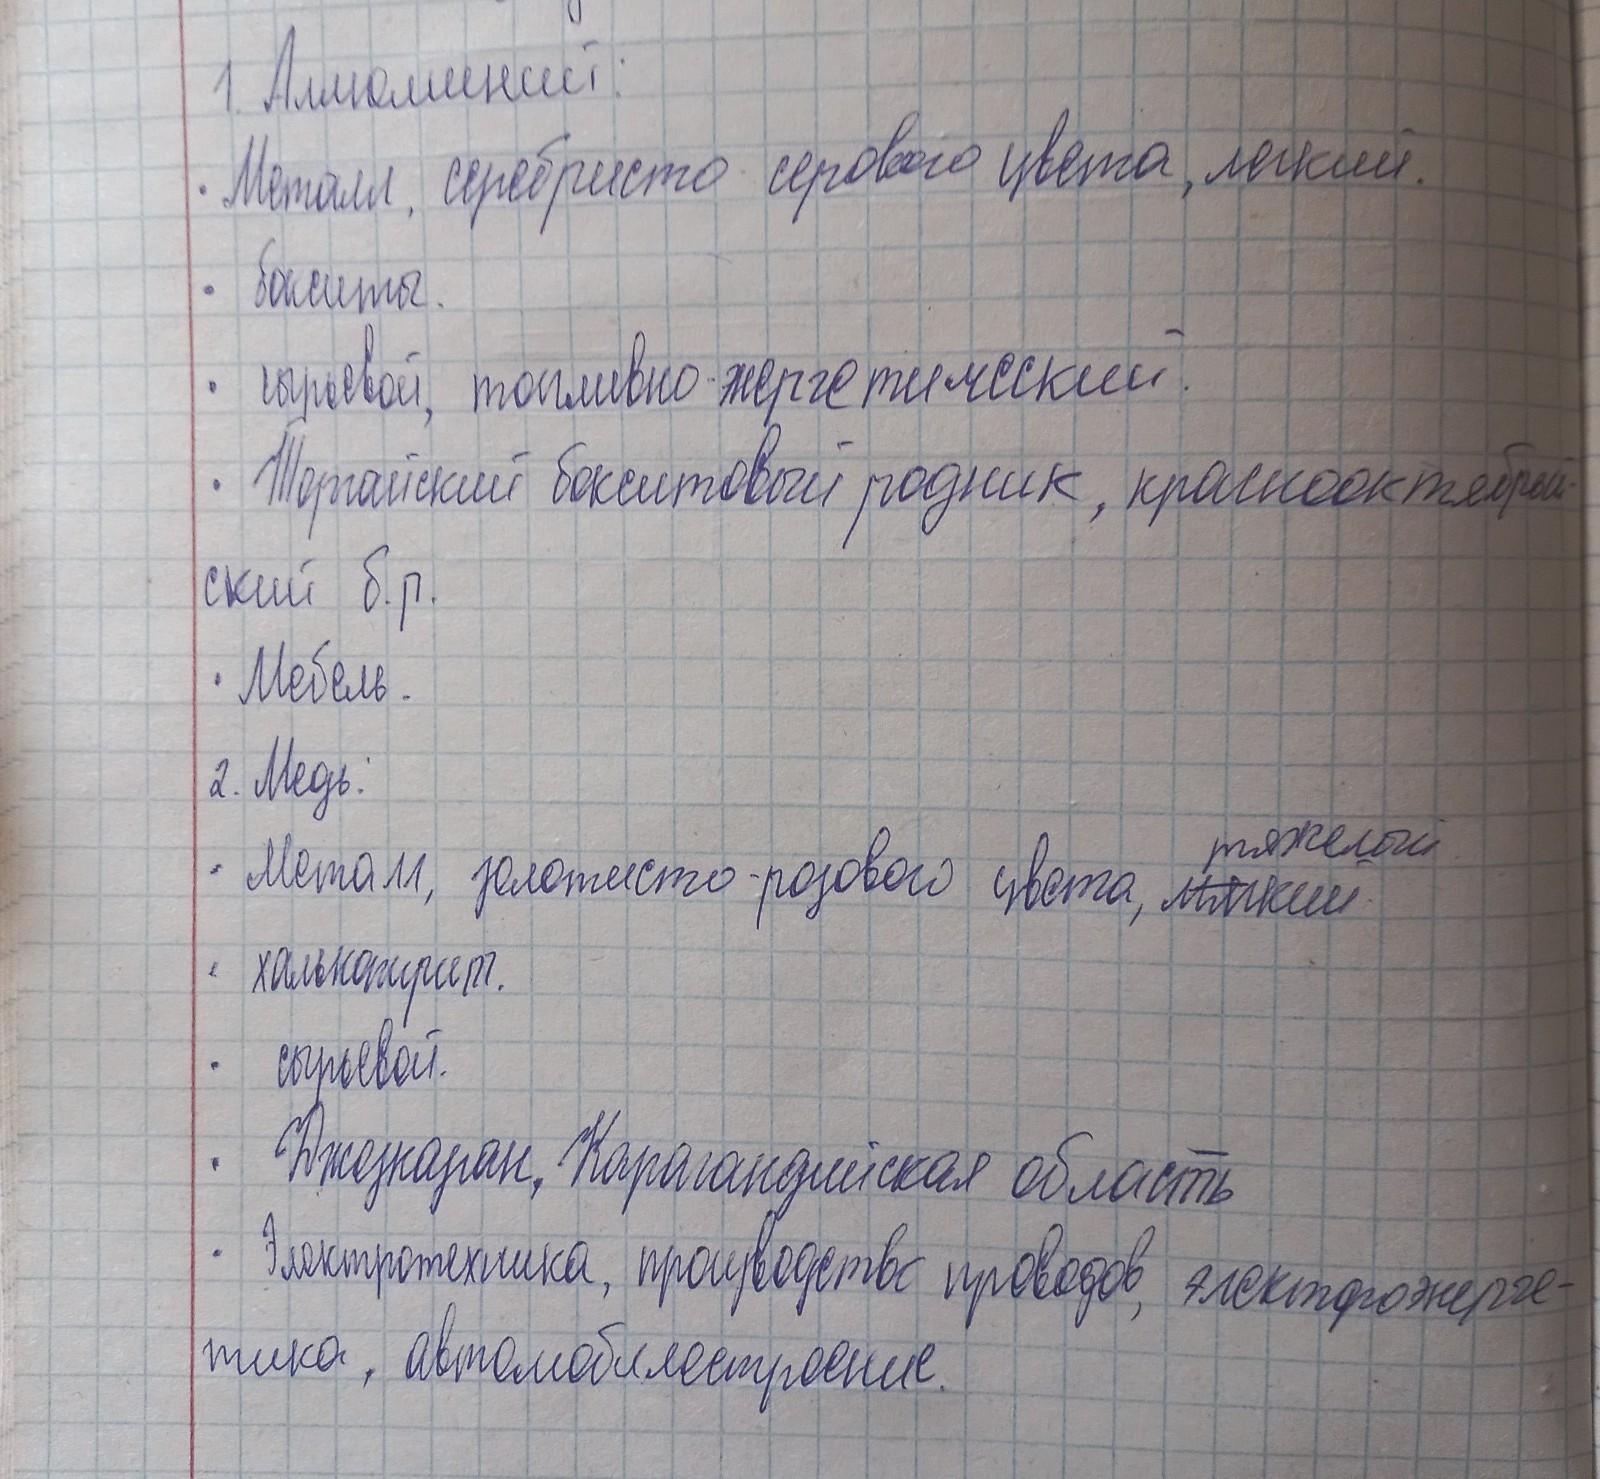 1. Алюминий:
· Металл, серебристо серового цвета, легкий.
· бокситы.
· сырьевой, топливно-энергетический.
· Торгайский бокситовый родник, краснооктябрьй-
ский б.р.
· Мебель.
2. Медь:
тяжелый
· Металл, золотисто-розового цвета,
· халькопирит.
· сырьевой.
· Джезказган, Карагандийская область
· Электротехника, производство проводов, электроэнерге-
тика, автомобилестроение.